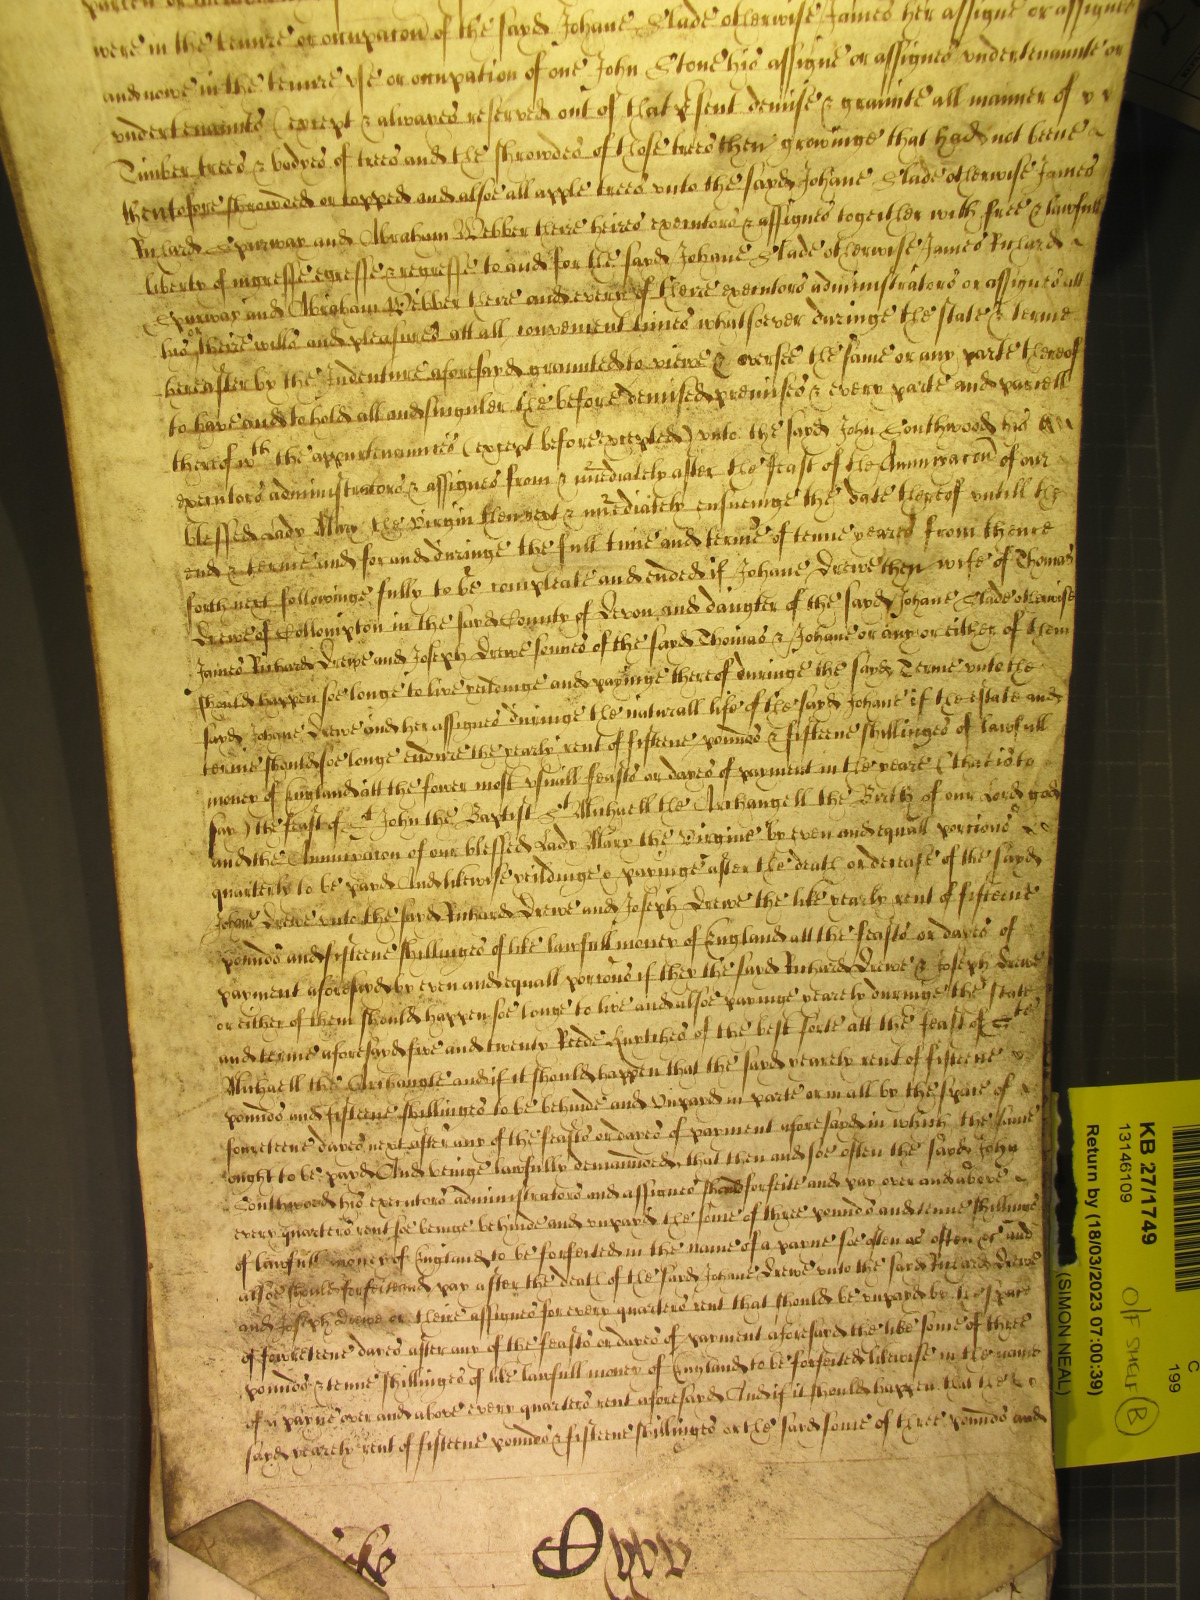 were in the tenure or occupacon of the sayd Johane Slade otherwise James her assigne or assignes
and nowe in the tenure use or occupation of one John Stone his assigne or assignes undertenante or
undertenants (except & alwayes reserved out of that psent demise & graunte all manner of
Timber trees & bodyes of trees and the shrowdes of those trees then growinge that had not beene
theretofore shrowded or topped and alsoe all apple trees unto the sayd Johane Slade otherwise James
Richard Spurway and Abraham Webber theire heires executors & assignes togeither with free & lawfull
liberty of ingresse egresse & regresse to and for the sayd Johane Slade otherwise James Richard
Spurway and Abraham Webber there and every of there executors administrators or assignes att
his or theire wills and pleasures att all convenient times whatsoever duringe the state & terme
hereafter by the Indenture aforesayd graunted to viewe & oversee the same or any parte thereof
to have and to hold all and singuler the before demised premises & every parte and parcell
thereof wth the appurtenances (except before excepted) unto the sayd John Southwood his
executors administrators & assignes from & imediately after the feast of the Annunciacon of our
blessed Lady Mary the virgin then next & imediately ensueinge the date thereof untill the
end & terme and for and duringe the full time and terme of tenne yeares from thence
forth next followinge fully to be compleate and ended if Johane Drewe then wife of Thomas
Drewe of Collompton in the sayd County of Devon and daugter of the sayd Johane Slade otherwise
James Richard Drewe and Joseph Drewe sonnes of the sayd Thomas & Johane or any or either of them
should happen soe longe to live yeildinge and payinge thereof duringe the sayd Terme unto the
sayd Johane Drewe and her assignes duringe the naturall life of the sayd Johane if the estate and
terme should soe longe endure the yearly rent of fifteene pounds & fifteene shillinges of lawfull
money of England att the fower most usuall feasts or dayes of payment in the yeare (that is to
say) the feast of St John the Baptist St Michaell the Archangell the Birth of our Lord god
and the Annunciacon of our blessed Lady Mary the Virgine by even and equall portions
quarterly to be payd And likewise yeildinge & payinge after the death or decease of the sayd
Johane Drewe unto the sayd Richard Drewe and Joseph Drewe the like yearly rent of fifteene
pounds and fifteene shillinges of like lawfull money of England att the feasts or dayes of
payment aforesayd by even and equall porcons if they the sayd Richard Drewe & Joseph Drewe
or either of them should happen soe longe to live and alsoe payinge yearely duringe the state
and terme aforesayd five and twenty Reede of the best sorte att the feast of St
Michaell the Archangle and if it should happen that the sayd yearely rent of fifteene
pounds and fifteene shillinges to be behinde and unpayd in parte or in all by the space of
foureteene dayes next after any of the feasts or dayes of payment aforesayd in which the same
ought to be payd And beinge lawfully demaunded that then and soe often the sayd John
Southwood his executors administrators and assignes should forfeite and pay over and above
every quarters rent soe beinge behinde and unpayd the some of three pounds and tenne shillings
of lawfull money of England to be forfeited in the name of a payne soe often as often &c and
alsoe should forfeite and pay after the death of the sayd Johane Drewe unto the sayd Richard Drewe
and Joseph Drewe or theire assignes for every quarters rent that should be unpayd by the space
of fowreteene dayes after any of the feasts or dayes of payment aforesayd the like some of three
pounds & tenne shillinges of like lawfull money of England to be forfeited likewise in the name
of a payne over and above every quarters rent aforesayd And if it should happen that the
sayd yearely rent of fifteene pounds & fifteene shillinges or the sayd some of three pounds and
KB 27/1749
13146109
Return by (18/03/2023 07:00:39)
(SIMON NEAL)
C
199
O/F SHELF B